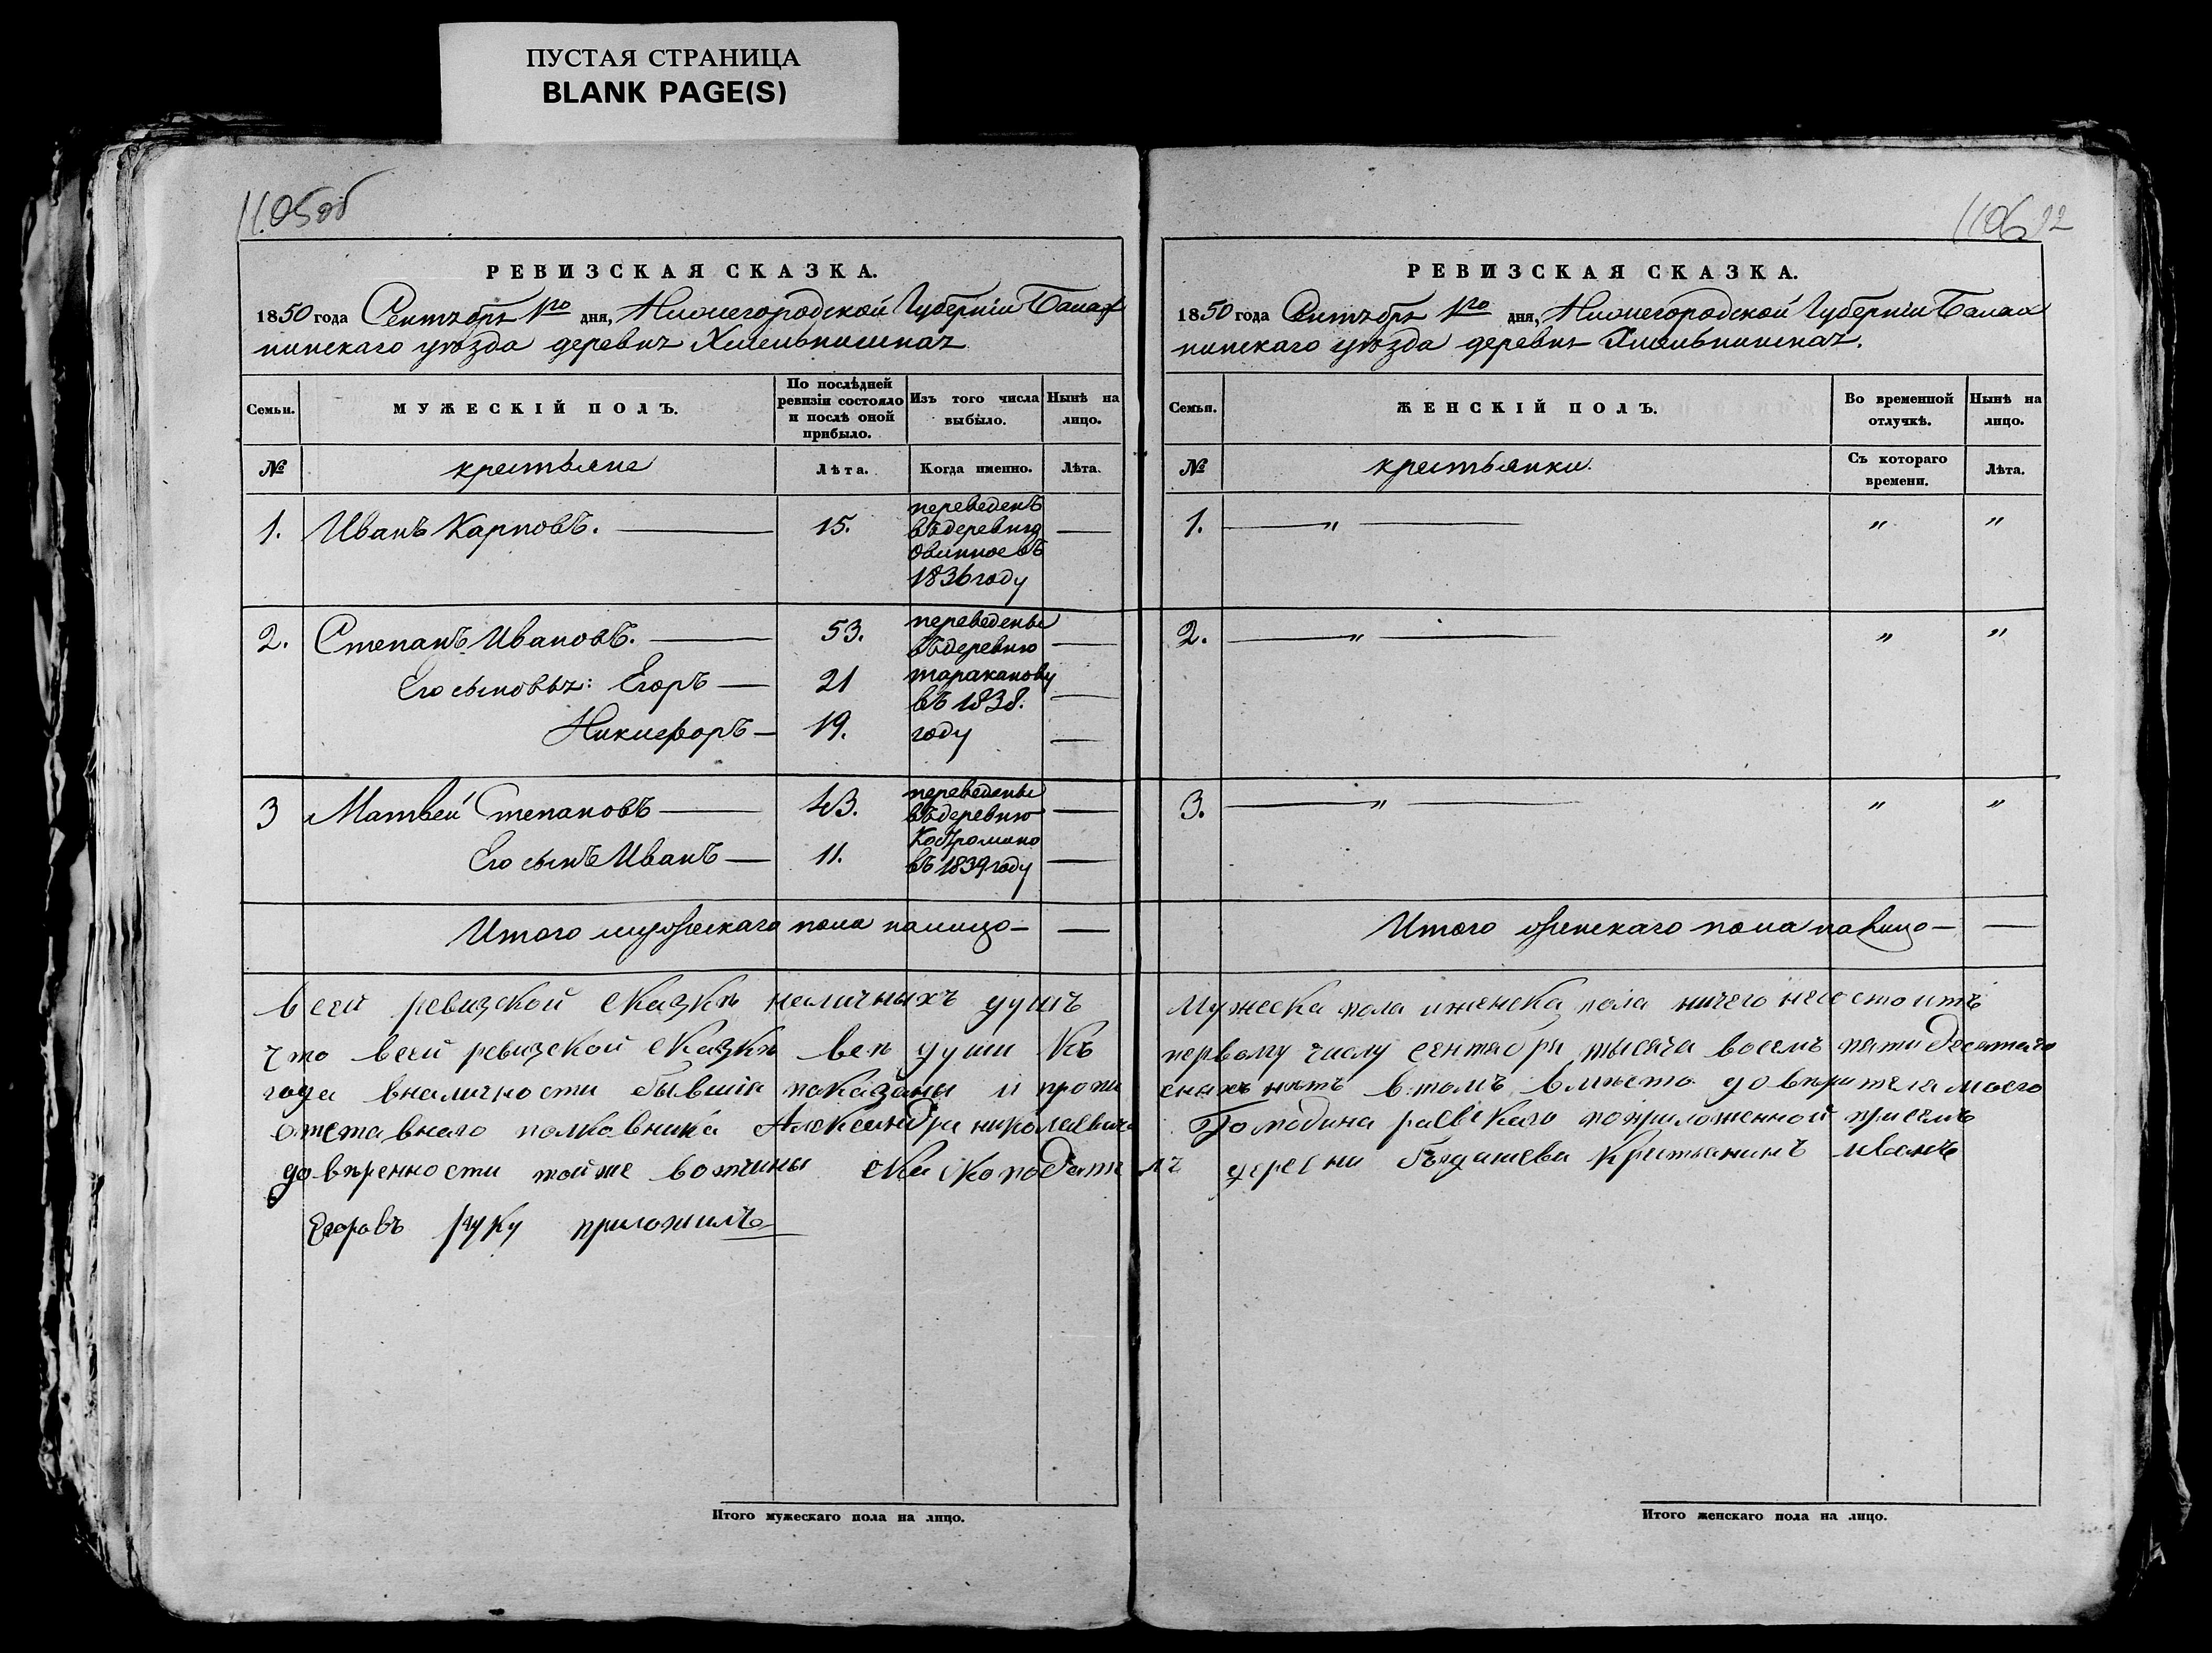 ПУСТАЯ СТРАНИЦА
BLANK PAGE(S)
1105об
РЕВИЗСКАЯ СКАЗКА.
1850 года Сентября 1го дня, Нижегородской Губерніи Балах
нинскаго уѣзда деревни
Семьи.
МУЖЕСКІЙ ПОЛЪ.
По послѣдней ревизіи состояло и послѣ оной прибыло.
Изъ того числа выбыло.
Нынѣ на лицо.
№
крестьяне
Лѣта.
Когда именно.
Лѣта.
1. Иванъ Карповъ. 15. —
переведенъ
въ деревню
Овинное въ
1836 году
2. Степанъ Ивановъ. 53. —
Его сыновья: Егоръ — 21 —
Никифоръ — 19. —
переведены
въ деревню
тараканову
въ 1838.
году
3 Матвей Степановъ 43. —
Его сынъ Иванъ — 11. —
переведены
въ деревню
Костромино
въ 1839 году
Итого мужескаго пола налицо — —
всей ревизской сказкѣ наличныхъ душъ
что всей ревизской сказкѣ всѣ души къ
года вналичности бывшія показаны и пропи
отставнаго полковника Александра николаевича
довѣренности тойже вотчины
Егоровъ руку приложилъ
1106 92
РЕВИЗСКАЯ СКАЗКА.
1850 года Сентября 1го дня, Нижегородской Губерніи Балах
нинскаго уѣзда деревни
Семьи.
ЖЕНСКІЙ ПОЛЪ.
Во временной отлучкѣ.
Нынѣ на лицо.
№
крестьянки.
Съ котораго времени.
Лѣта.
1. — " — " "
2. — " — " "
3. — " — " "
Итого женскаго пола налицо — —
мужеска пола и женска пола ничего несостоитъ
первому числу сентября тысяча восемь пятидесятаго
сныхъ нѣтъ втомъ вмѣсто довѣрителя моего
Господина раевскаго поприложенной присемъ
деревни крестьянинъ иванъ
Итого мужескаго пола на лицо.
Итого женскаго пола на лицо.